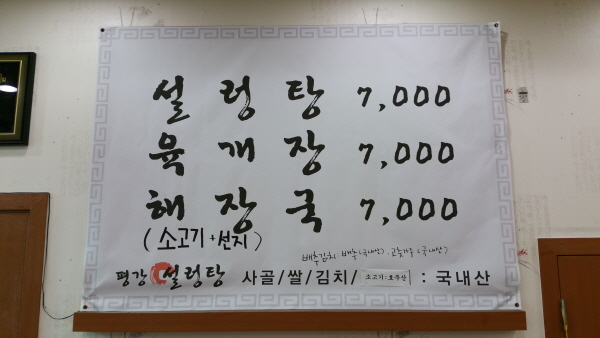 설렁탕 7,000
육개장 7,000
해장국 7,000
(소고기+선지)
배추김치 배추(국내산). 고춧가루(국내산)
평강 설렁탕 사골/쌀/김치/ 소고기:호주산 : 국내산